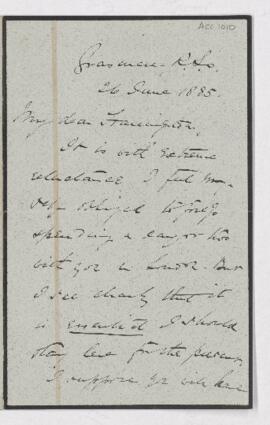 Acc 1010
Grasmere - R.S.O.
26 June 1885.
My dear
It is with extreme
reluctance I feel my-
self obliged to forego
spending a day or two
with you in London. But
I see clearly that it
is essential I should
stay here for the present
I suppose you will have